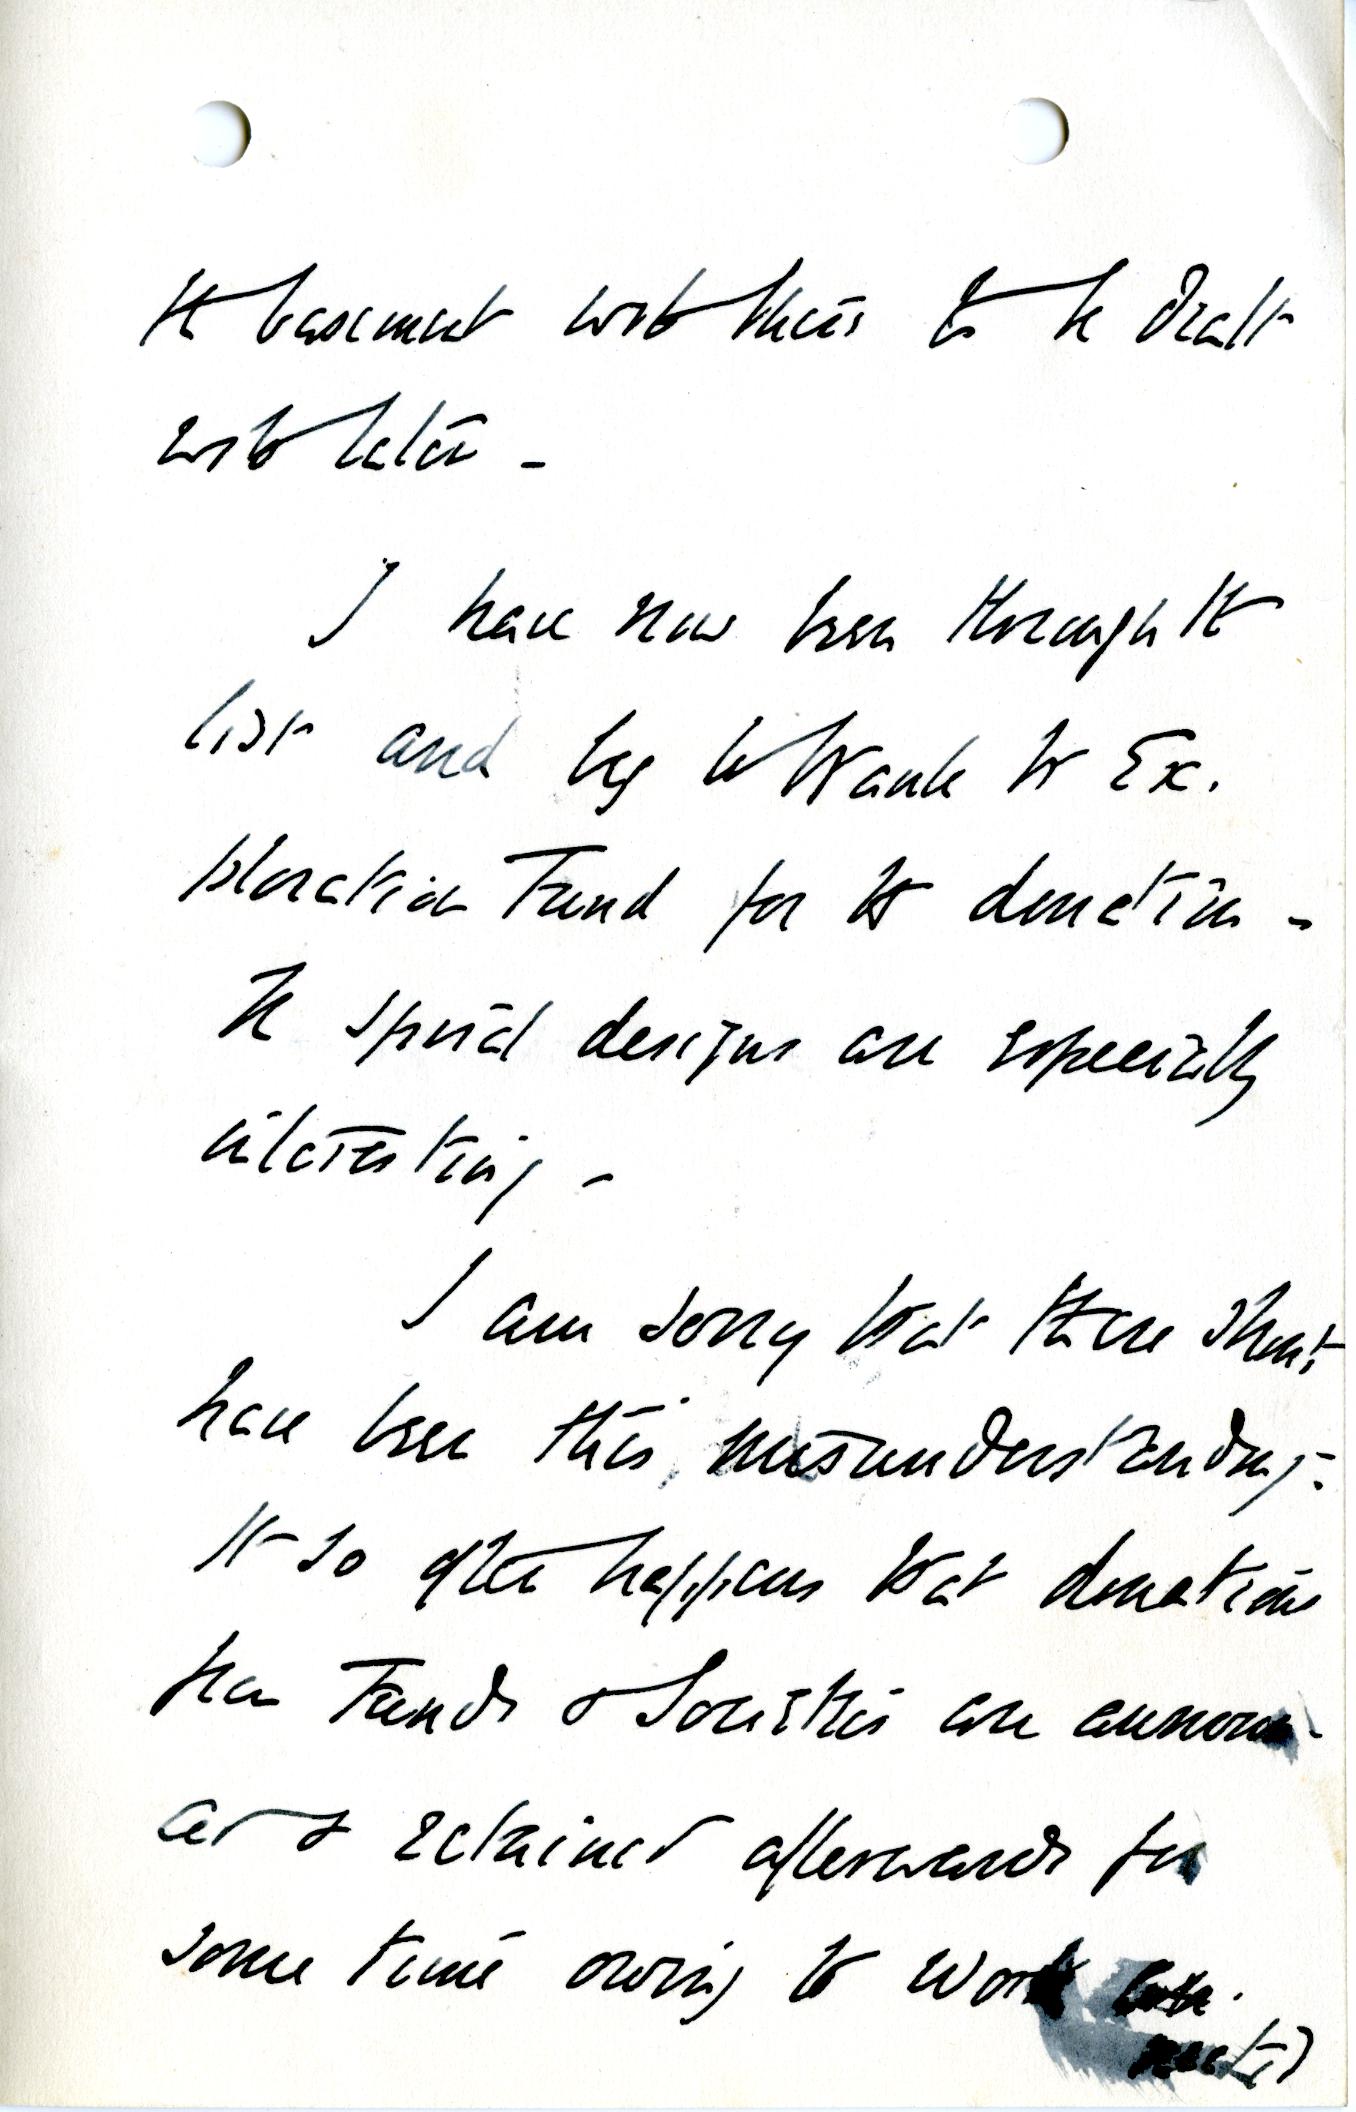 the basement with theirs to be dealt
with later -
I have now been through the
list and beg to thank the Ex.
ploration Fund for the donation -
The spiral designs are especially
interesting -
I am sorry that there should
have been this misunderstanding -
It so often happens that donations
from Funds & Societies are announ-
ced & retained afterwards for
some time owing to work con.
nected